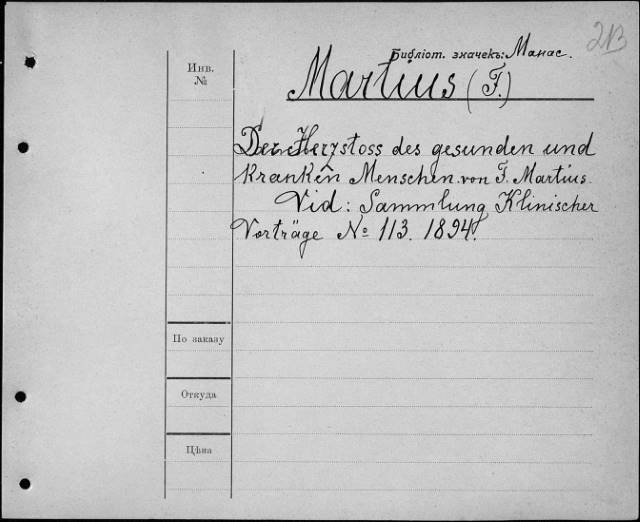 213
Библіот. значекъ: Манас.
Инв.
№
Martius (F.)
Der Herzstoss des gesunden und
kranken Menschen von F. Martius.
Vid: Sammlung Klinischer
Vorträge № 113. 1894.
По заказу
Откуда
Цѣна